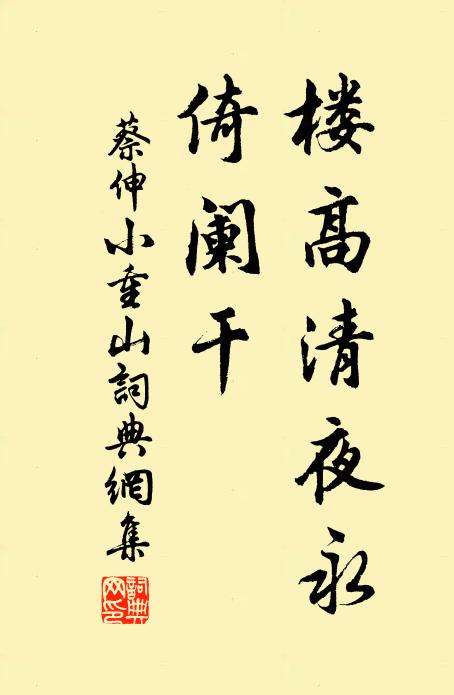 楼高清夜永
倚阑干
蔡伸小重山詞典網集
詞典网印